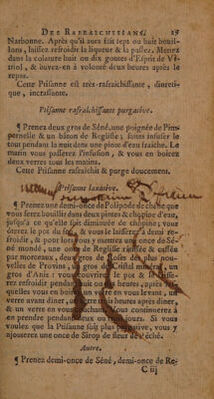 DES RAFRAICHISSANS. 25
Narbonne. Après qu'il aura fait sept ou huit bouil-
lons, laissez refroidir la liqueur & la passez. Mettez
dans chacun huit ou dix gouttes d'Esprit de Vi-
triol, & buvez-en à volonté deux heures après le
repas.
Cette Ptisanne est très-rafraichissante, diureti-
que, incrassante.
Ptisanne rafraichissante purgative.
¶ Prenez deux gros de Séné, une poignée de Pim-
pernelle & un bâton de Reglisse; faites infuser le
tout pendant la nuit dans une pinte d'eau fraiche. Le
matin vous passerez l'infusion, & vous en boirez
deux verres tous les matins.
Cette Ptisanne rafraichit & purge doucement.
Ptisanne laxative.
¶ Prenez une demi-once de Polipode de chêne que
vous ferez bouillir dans deux pintes & chopine d'eau,
jusqu'à ce qu'elle soit diminuée de chopine; vous
ôterez le pot du feu, & vous le laisserez à demi re-
froidir, & pour lors vous y mettrez une once de Sé-
né mondé, une once de Reglisse ratissée & cassée
par morceaux, deux gros de Roses des plus nou-
velles de Provins, Cristal mineral, un
gros d'Anis: vous couvrirez le pot & le laisse-
rez refroidir pendant huit ou heures, après les-
quelles vous en boirez un verre en vous levant, un
verre avant dîner, heures après dîner,
& un verre en vous couchant. Vous continuerez à
en prendre pendant ou jours. Si vous
voulez que la Ptisanne soit plus laxative, vous y
ajouterez une once de Sirop de fleur de Pêché.
Autre.
¶ Prenez demi-once de Séné, demi-once de Re-
C iij